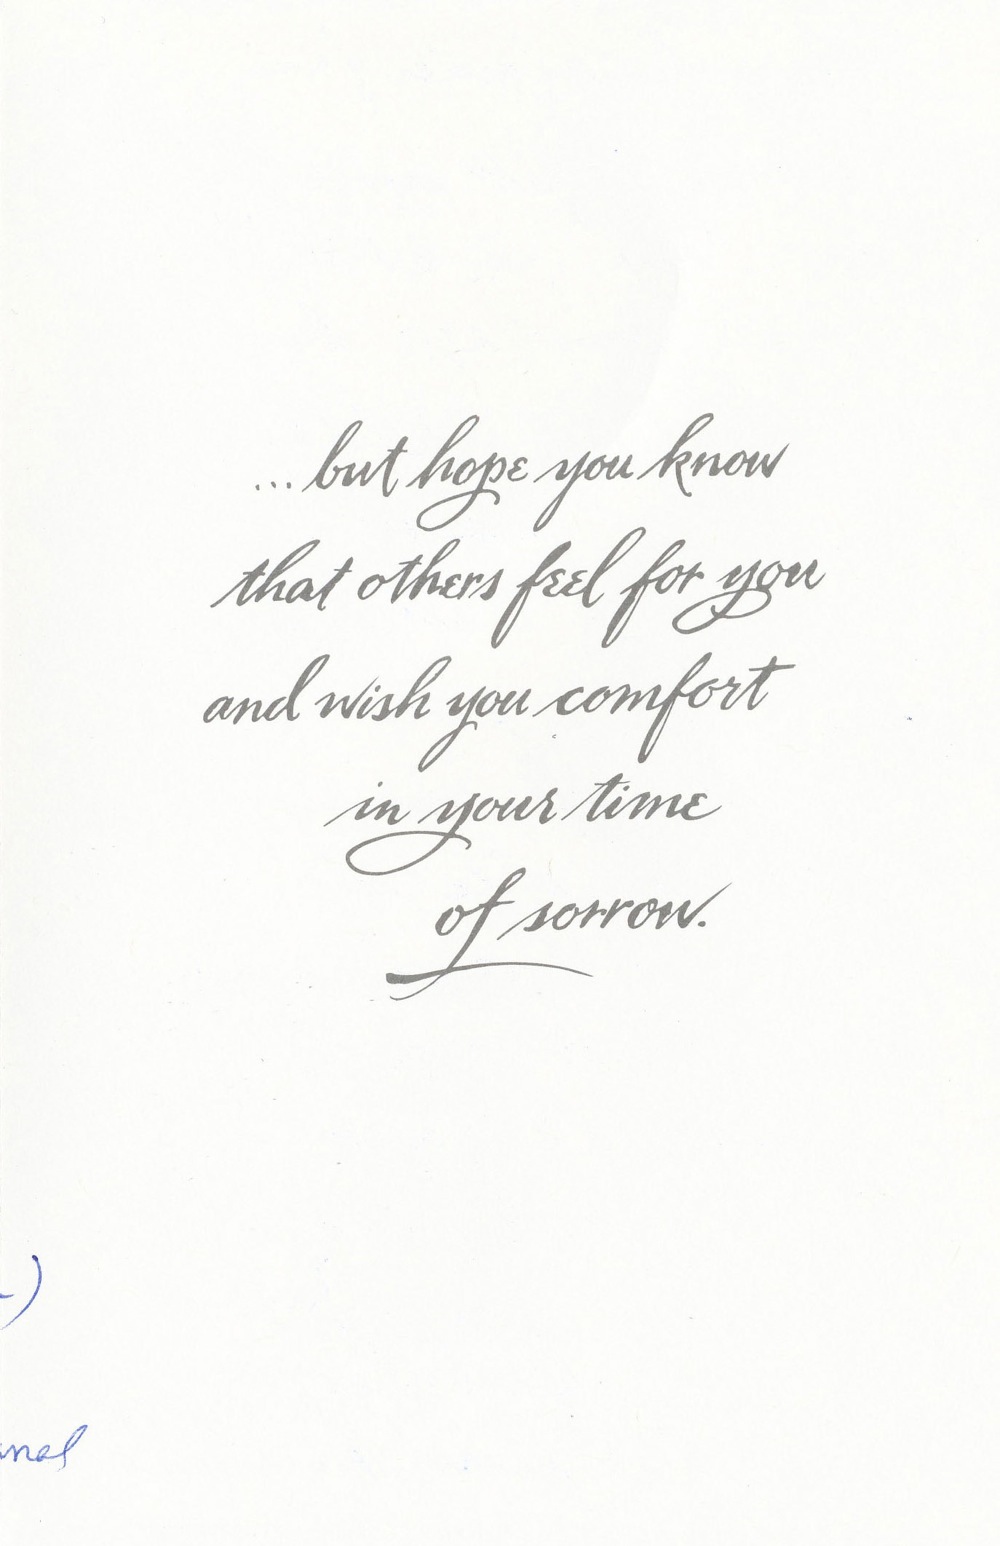 ...but hope you know
that others feel for you
and wish you comfort
in your time
of sorrow.
)